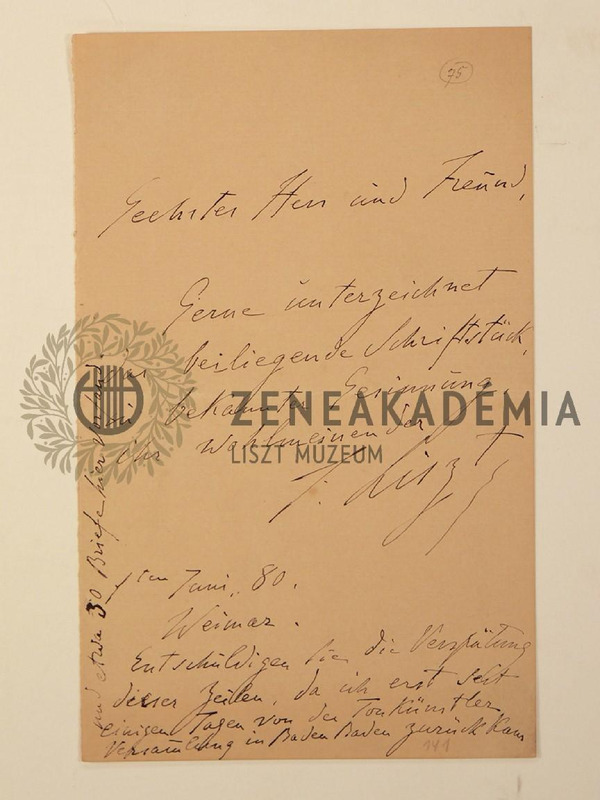 75
Geehrter Herr und Freund,
Gerne unterzeichnet
das beiliegende Schriftstück,
in bekannter Gesinnung,
ihr wohlmeinender
F. Liszt
ZENEAKADEMIA
LISZT MÚZEUM
1ten Juni, 80.
Weimar.
Entschuldigen Sie die Verspätung
dieser Zeilen, da ich erst seit
einigen Tagen von der Tonkünstler
Versammlung in Baden Baden zurück kam
und etwa 30 Briefe hier
141